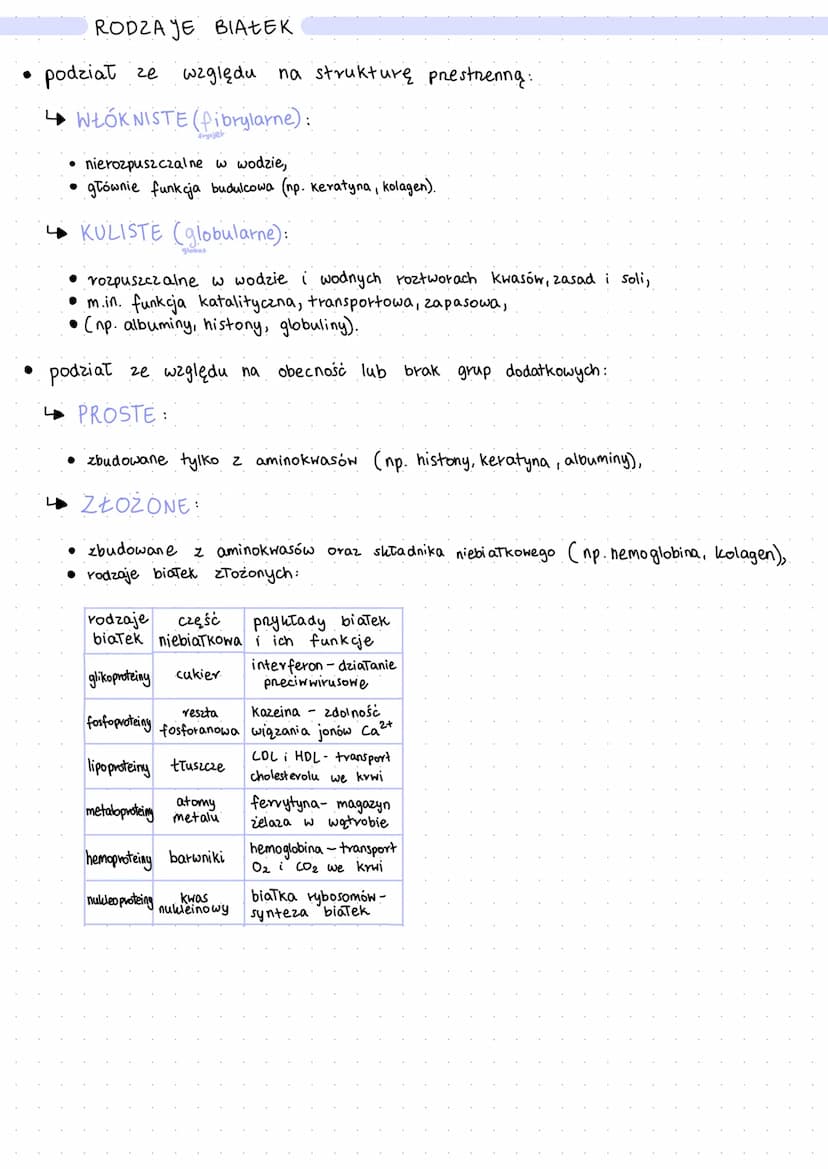 RODZAJE BIAŁEK
• podział ze względu na strukturę przestrzenną:
↳ WŁÓKNISTE (fibrylarne):
• nierozpuszczalne w wodzie,
• głównie funkcja budulcowa (np. keratyna, kolagen).
↳ KULISTE (globularne):
globus
• rozpuszczalne w wodzie i wodnych roztworach kwasów, zasad i soli,
• m.in. funkcja katalityczna, transportowa, zapasowa,
• (np. albuminy, histony, globuliny).
• podział ze względu na obecność lub brak grup dodatkowych:
↳ PROSTE:
• zbudowane tylko z aminokwasów (np. histony, keratyna, albuminy),
↳ ZŁOŻONE:
• zbudowane z aminokwasów oraz składnika niebiałkowego (np. hemoglobina, kolagen),
• rodzaje białek złożonych:
rodzaje białek | część niebiałkowa | przykłady białek i ich funkcje
glikoproteiny | cukier | interferon - działanie przeciwwirusowe
fosfoproteiny | reszta fosforanowa | kazeina - zdolność wiązania jonów Ca²⁺
lipoproteiny | tłuszcze | LDL i HDL - transport cholesterolu we krwi
metaloproteiny | atomy metalu | ferrytyna - magazyn żelaza w wątrobie
hemoproteiny | barwniki | hemoglobina - transport O₂ i CO₂ we krwi
nukleoproteiny | kwas nukleinowy | białka rybosomów - synteza białek